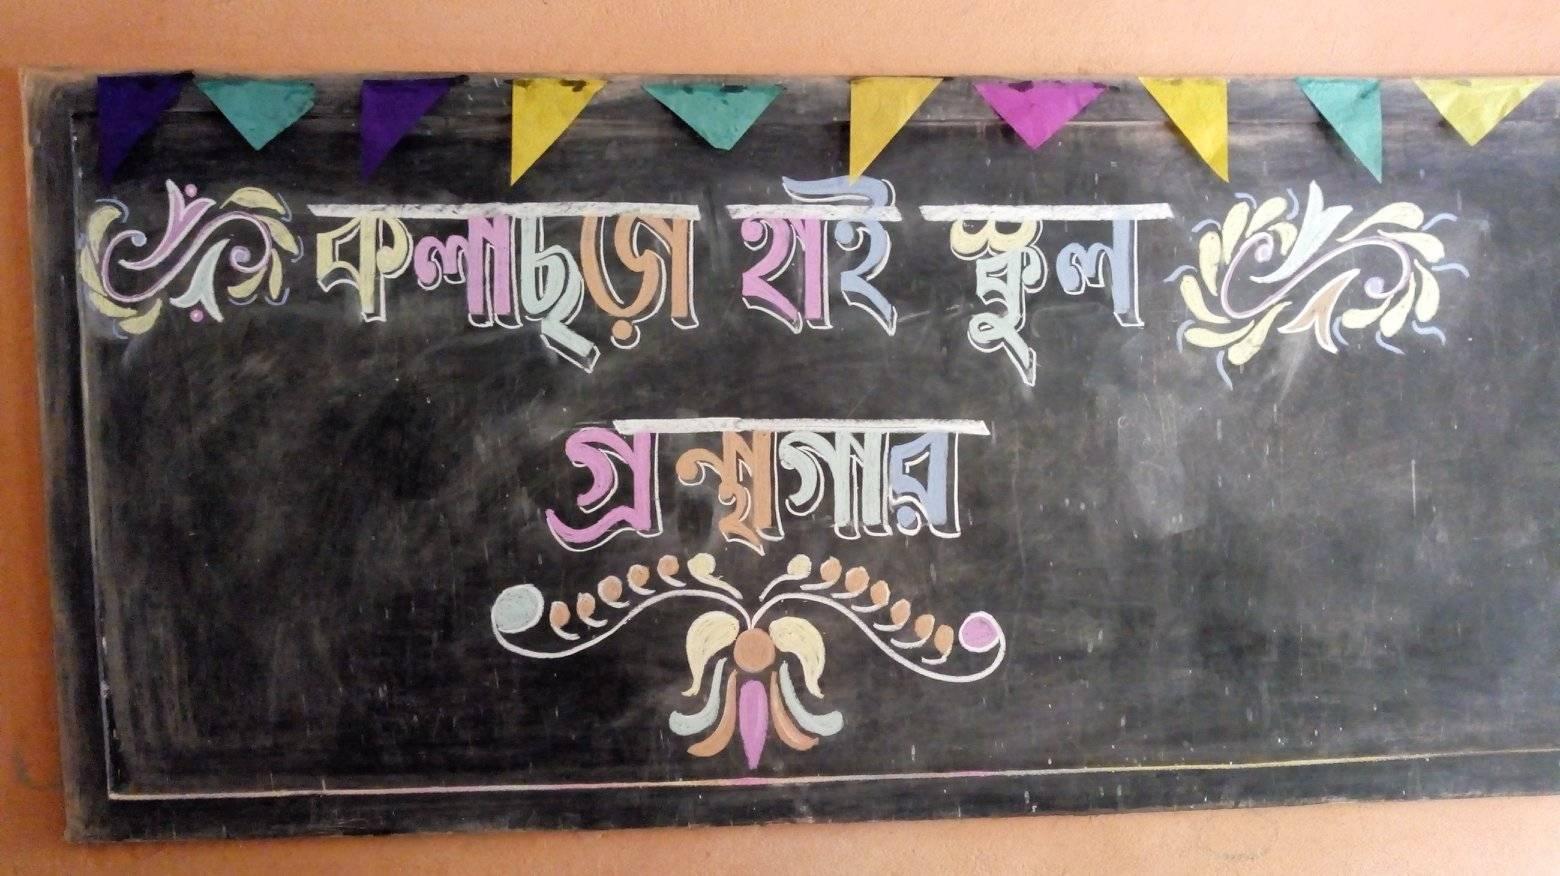 কলাছড়া হাই স্কুল
গ্রন্থাগার